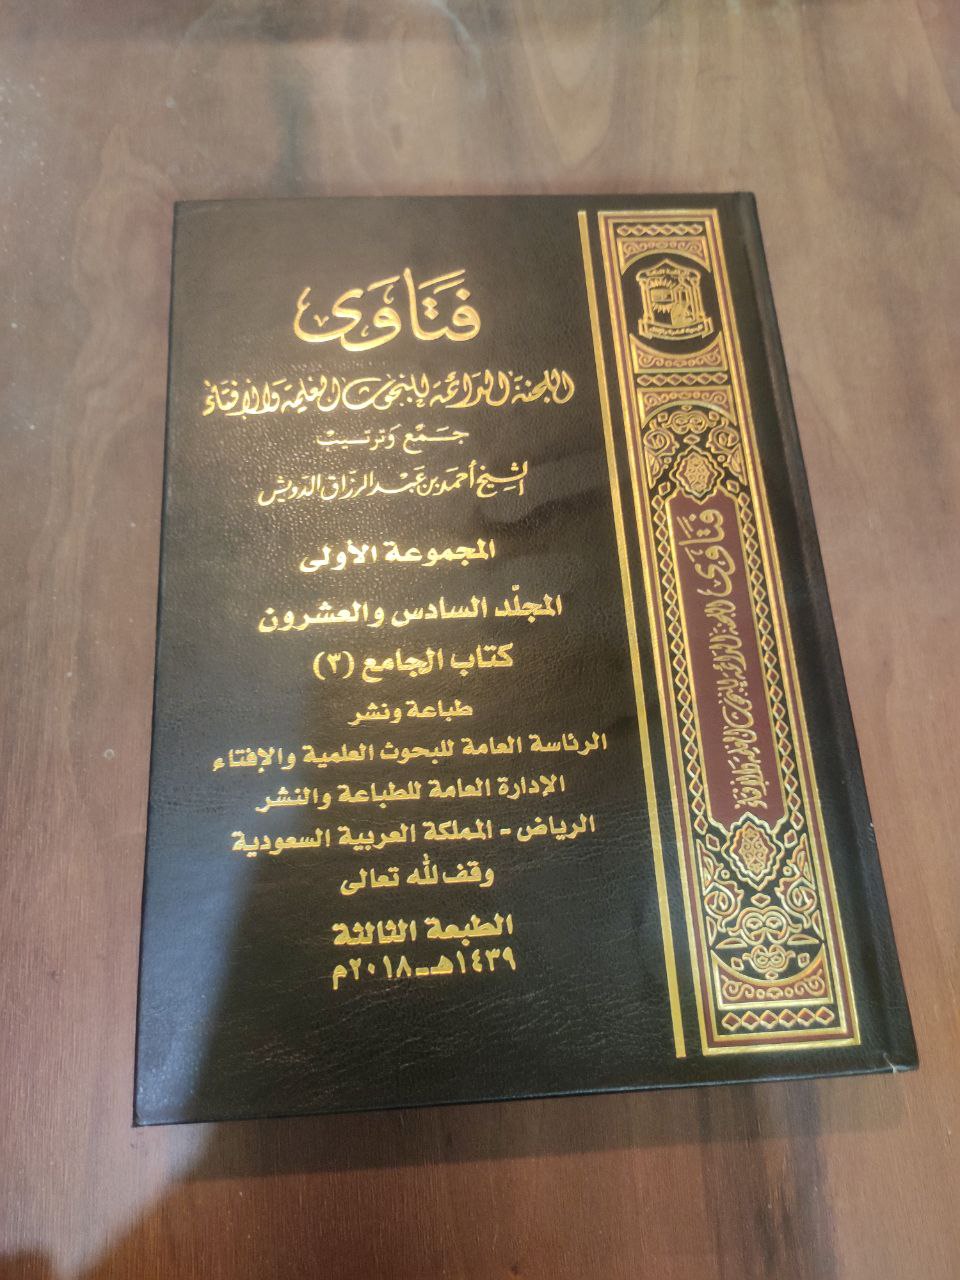 فتاوى
اللجنة الدائمة للبحوث العلمية والإفتاء
جمع وترتيب
الشيخ أحمد بن عبد الرزاق الدويش
المجموعة الأولى
المجلّد السادس والعشرون
كتاب الجامع (٣)
طباعة ونشر
الرئاسة العامة للبحوث العلمية والإفتاء
الإدارة العامة للطباعة والنشر
الرياض - المملكة العربية السعودية
وقف لله تعالى
الطبعة الثالثة
١٤٣٩هـ - ٢٠١٨م
فتاوى اللجنة الدائمة للبحوث العلمية والإفتاء